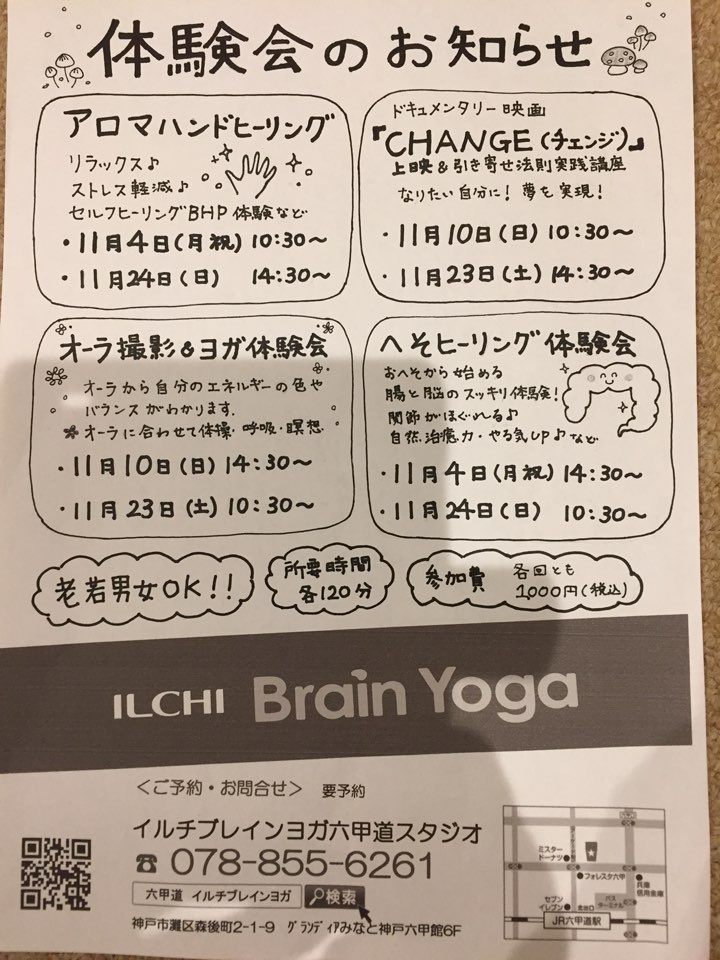 体験会のお知らせ
アロマハンドヒーリング
リラックス♪
ストレス軽減♪
セルフヒーリングBHP体験など
・11月4日(月祝) 10:30～
・11月24日(日) 14:30～
ドキュメンタリー映画
『CHANGE(チェンジ)』
上映&引き寄せ法則実践講座
なりたい自分に！夢を実現！
・11月10日(日) 10:30～
・11月23日(土) 14:30～
オーラ撮影&ヨガ体験会
オーラから自分のエネルギーの色や
バランスがわかります.
オーラに合わせて体操・呼吸・瞑想
・11月10日(日) 14:30～
・11月23日(土) 10:30～
へそヒーリング体験会
おへそから始める
腸と脳のスッキリ体験！
関節がほぐれる♪
自然治癒力・やる気UP♪など
・11月4日(月祝) 14:30～
・11月24日(日) 10:30～
老若男女OK!!
所要時間
各120分
参加費
各回とも
1,000円(税込)
ILCHI Brain Yoga
＜ご予約・お問合せ＞ 要予約
イルチブレインヨガ六甲道スタジオ
☎ 078-855-6261
六甲道 イルチブレインヨガ 検索
神戸市灘区森後町2-1-9 グランディアみなと神戸六甲館6F
ミスター
ドーナツ
フォレスタ六甲
兵庫
信用金庫
セブン
イレブン
北出口
バス
ターミナル
JR六甲道駅